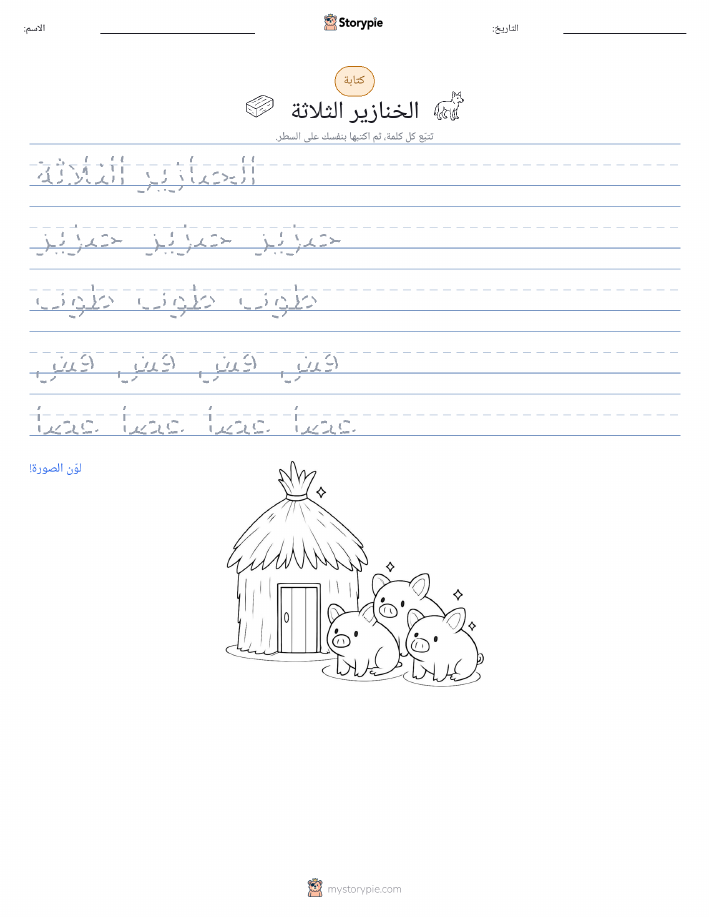 Storypie
الاسم:
التاريخ:
كتابة
الخنازير الثلاثة
تتبّع كل كلمة، ثم اكتبها بنفسك على السطر.
الخنازير الثلاثة
خنزير خنزير خنزير
طوب طوب طوب
قش قش قش قش
عصا عصا عصا عصا
لوّن الصورة!
mystorypie.com